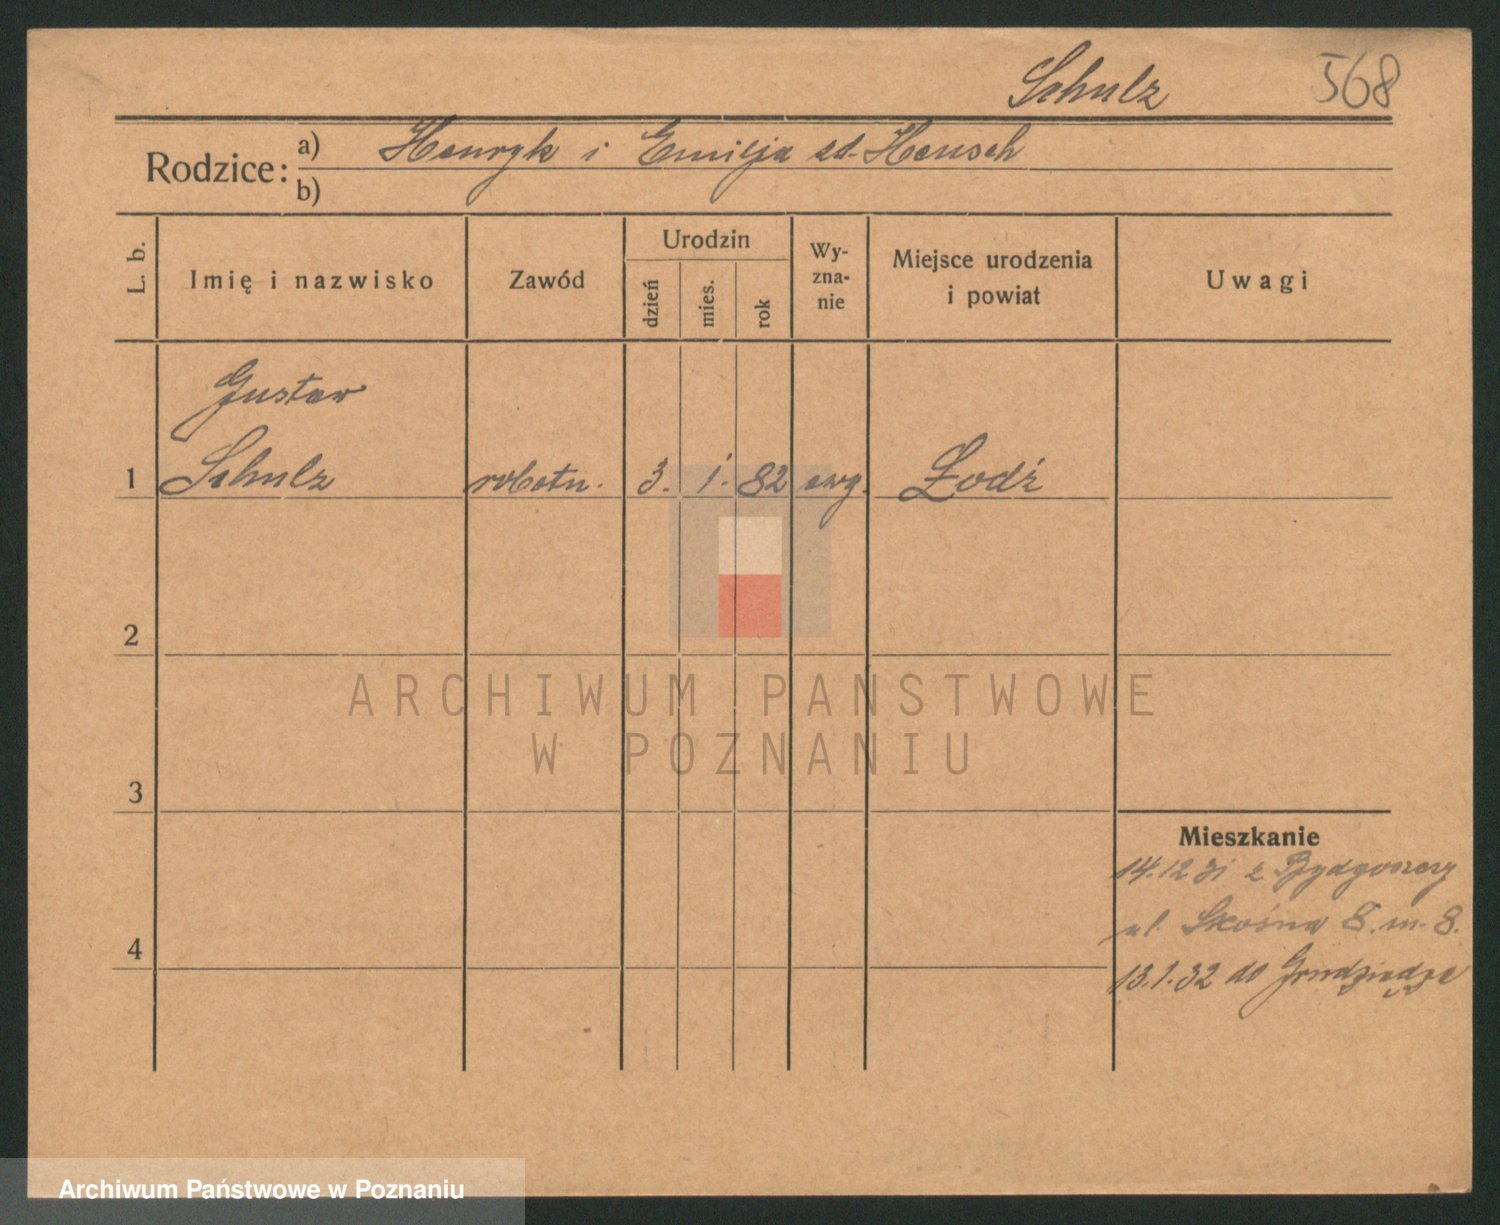 Schulz 568
Rodzice: a) Henryk i Emilja zd. Hensch
b)
L. b. Imię i nazwisko Zawód Urodzin dzień mies. rok Wy-zna-nie Miejsce urodzenia i powiat Uwagi
Gustaw
1 Schulz robotn. 3. 1. 82 ewg. Łodź
2
ARCHIWUM PAŃSTWOWE
W POZNANIU
3
Mieszkanie
14.12 31 z Bydgoszczy
ul. Skośna 8. m. 8.
4
13.1.32 do Grudziądza
Archiwum Państwowe w Poznaniu